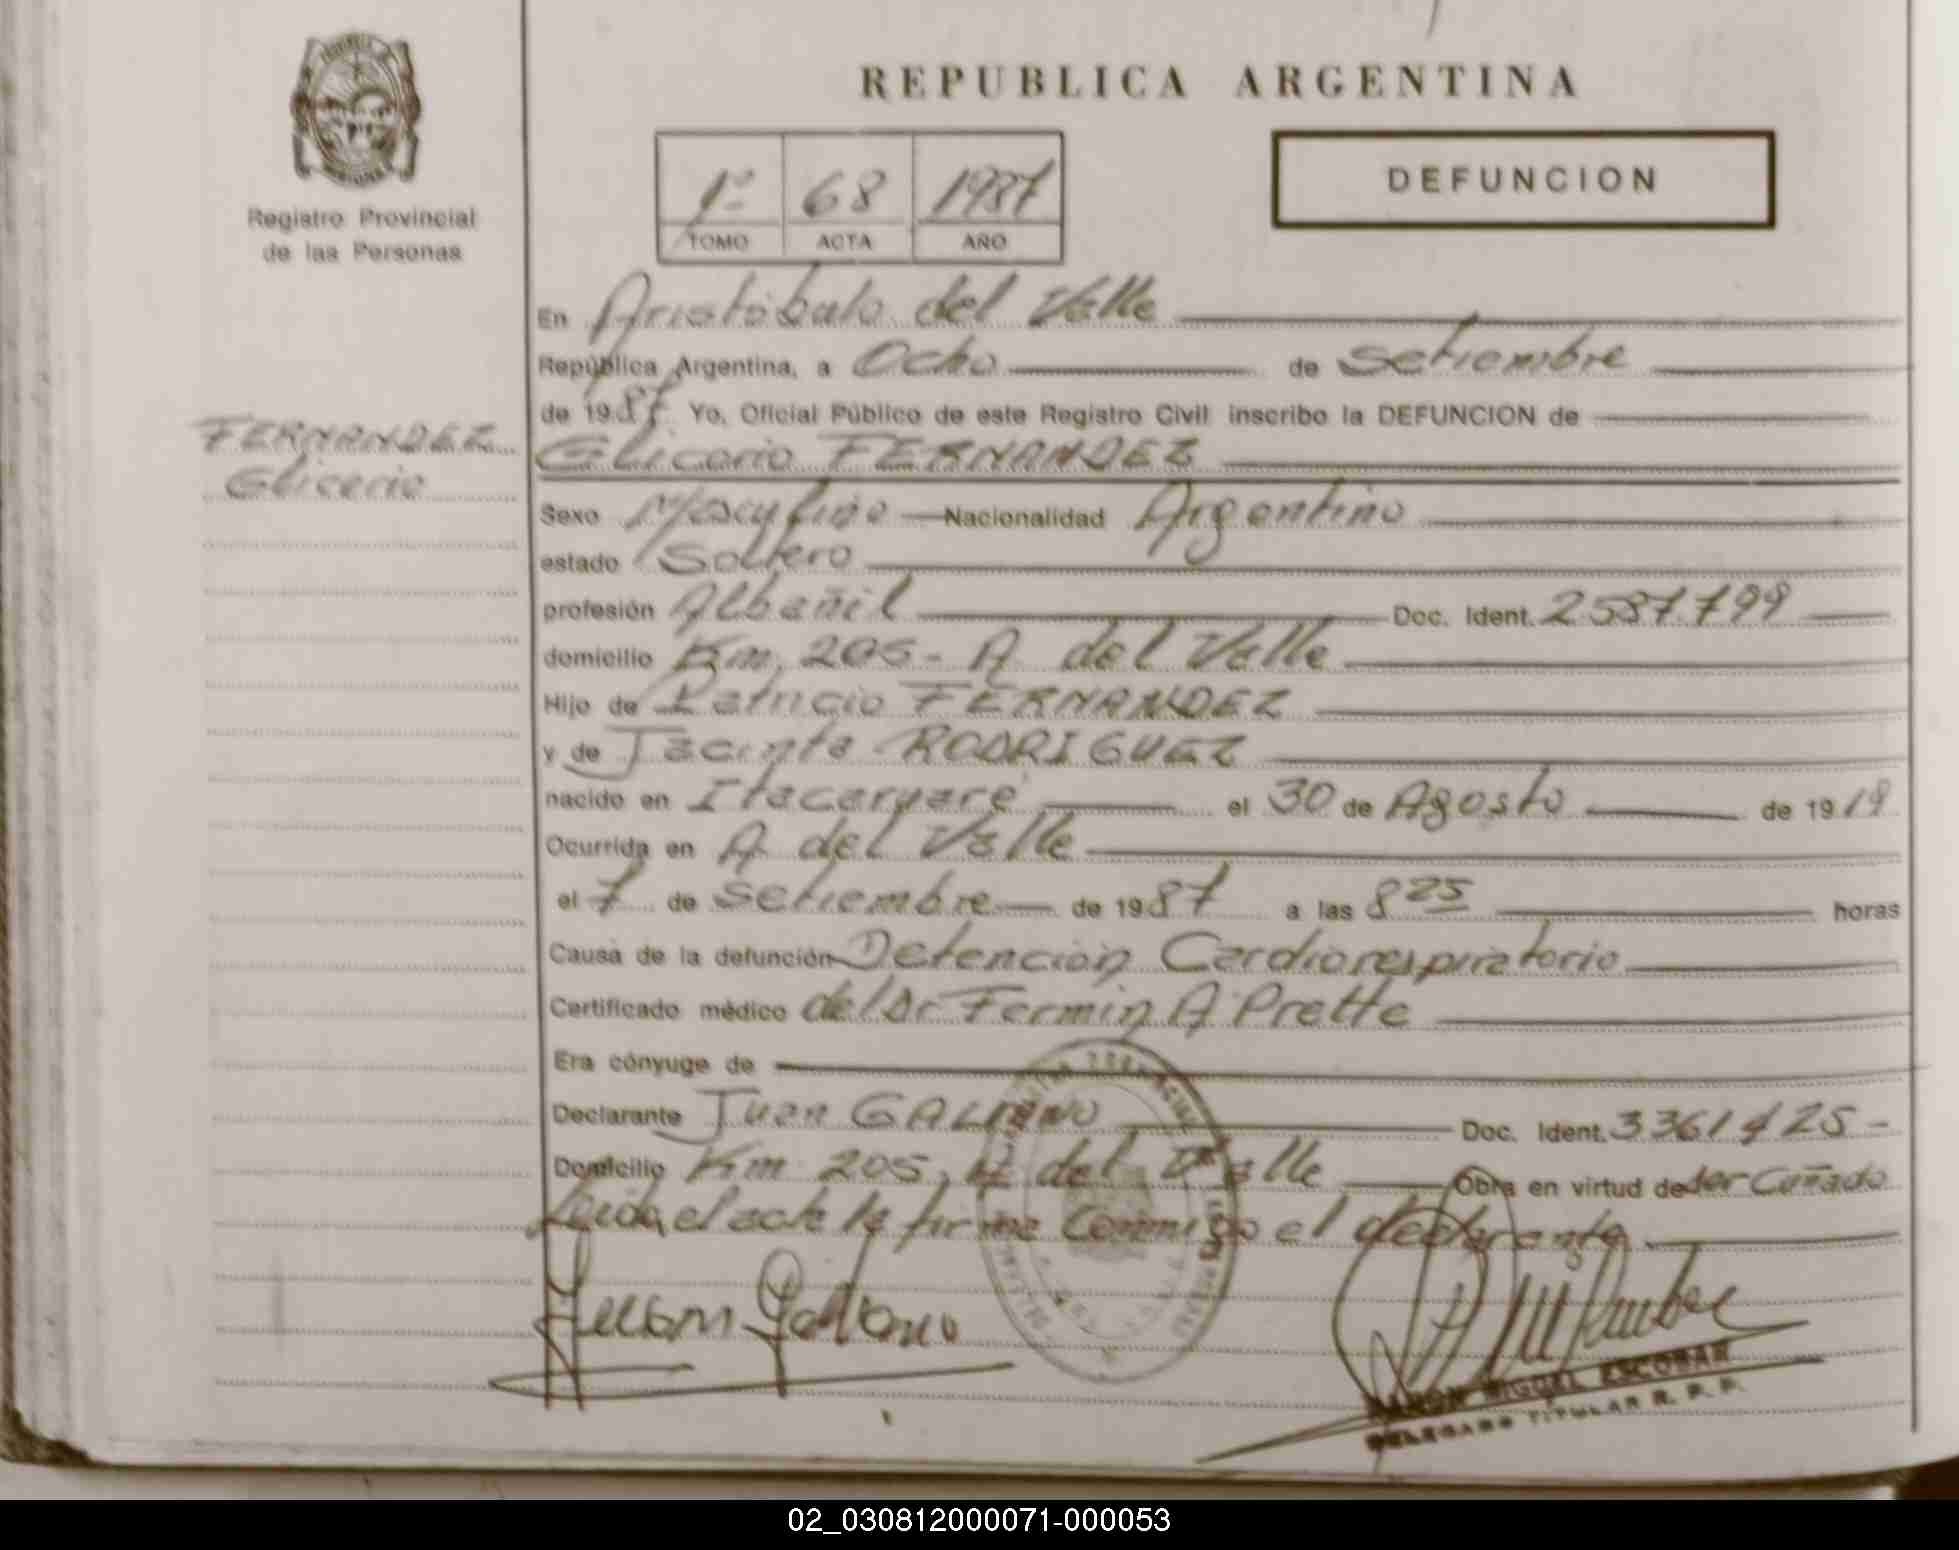 REPUBLICA ARGENTINA
DEFUNCION
1º 68 1987
TOMO ACTA AÑO
Registro Provincial
de las Personas
En Aristóbulo del Valle
República Argentina, a Ocho de Setiembre
de 1987 Yo, Oficial Público de este Registro Civil inscribo la DEFUNCION de
FERNANDEZ
Glicerio
Glicerio FERNANDEZ
Sexo Masculino Nacionalidad Argentino
estado Soltero
profesión Albañil Doc. Ident. 2587.799
domicilio Km. 205 - A del Valle
Hijo de Patricio FERNANDEZ
y de Jacinta RODRIGUEZ
nacido en Itacaruaré el 30 de Agosto de 1919
Ocurrida en A. del Valle
el 7 de Setiembre de 1987 a las 8 25 horas
Causa de la defunción Detención Cardiorespiratorio
Certificado médico del Dr Fermin A Prette
Era cónyuge de
Declarante Juan GALEANO Doc. Ident. 3361425 -
Domicilio Km 205, A del Valle Obra en virtud de ser Cuñado
Leida el acta la firma conmigo el declarante
Juan Galeano
RAMON MIGUEL ESCOBAR
DELEGADO TITULAR R. P. P.
02_030812000071-000053